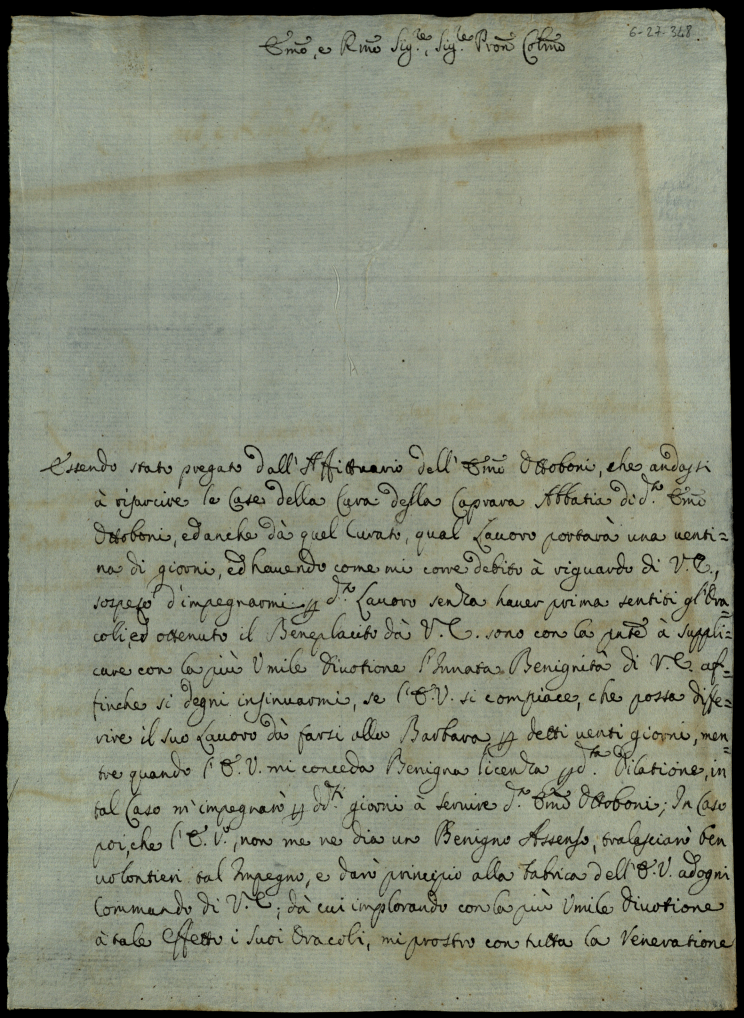 6-27-348
Emo, e Rmo Sig.re, Sig.re Pron Colmo
Essendo stato pregato dall'Affittuario dell'Emo Ottoboni, che andassi
à risarcire le Case della Cura della Caprara Abbatia di d.o Emo
Ottoboni, ed anche dà quel Curato, qual Lauoro portarà una uenti=
na di giorni, ed hauendo come mi corre debito à riguardo di V.E.,
sospeso d'impegnarmi p d.o Lauoro senza hauer prima sentiti gl'Ora=
coli, ed ottenuto il Beneplacito dà V.E. sono con la pnte à suppli=
care con la più Umile diuotione l'Innata Benignità di V.E. af=
finche si degni insinuarmi, se l'E.V. si compiace, che possa diffe=
rire il suo Lauoro dà farsi alla Barbara p detti uenti giorni, men=
tre quando l'E.V. mi conceda Benigna licenza p d.ta Dilatione, in
tal Caso m'impegnarò p dd.ti giorni à seruire d.o Emo Ottoboni; In Caso
poi, che l'E.V., non me ne dia un Benigno Assenso, tralasciarò ben
uolontieri tal Impegno, e darò principio alla fabrica dell'E.V. ad ogni
Commando di V.E.; dà cui implorando con la più Umile diuotione
à tale Effetto i Suoi Oracoli, mi prostro con tutta la Veneratione